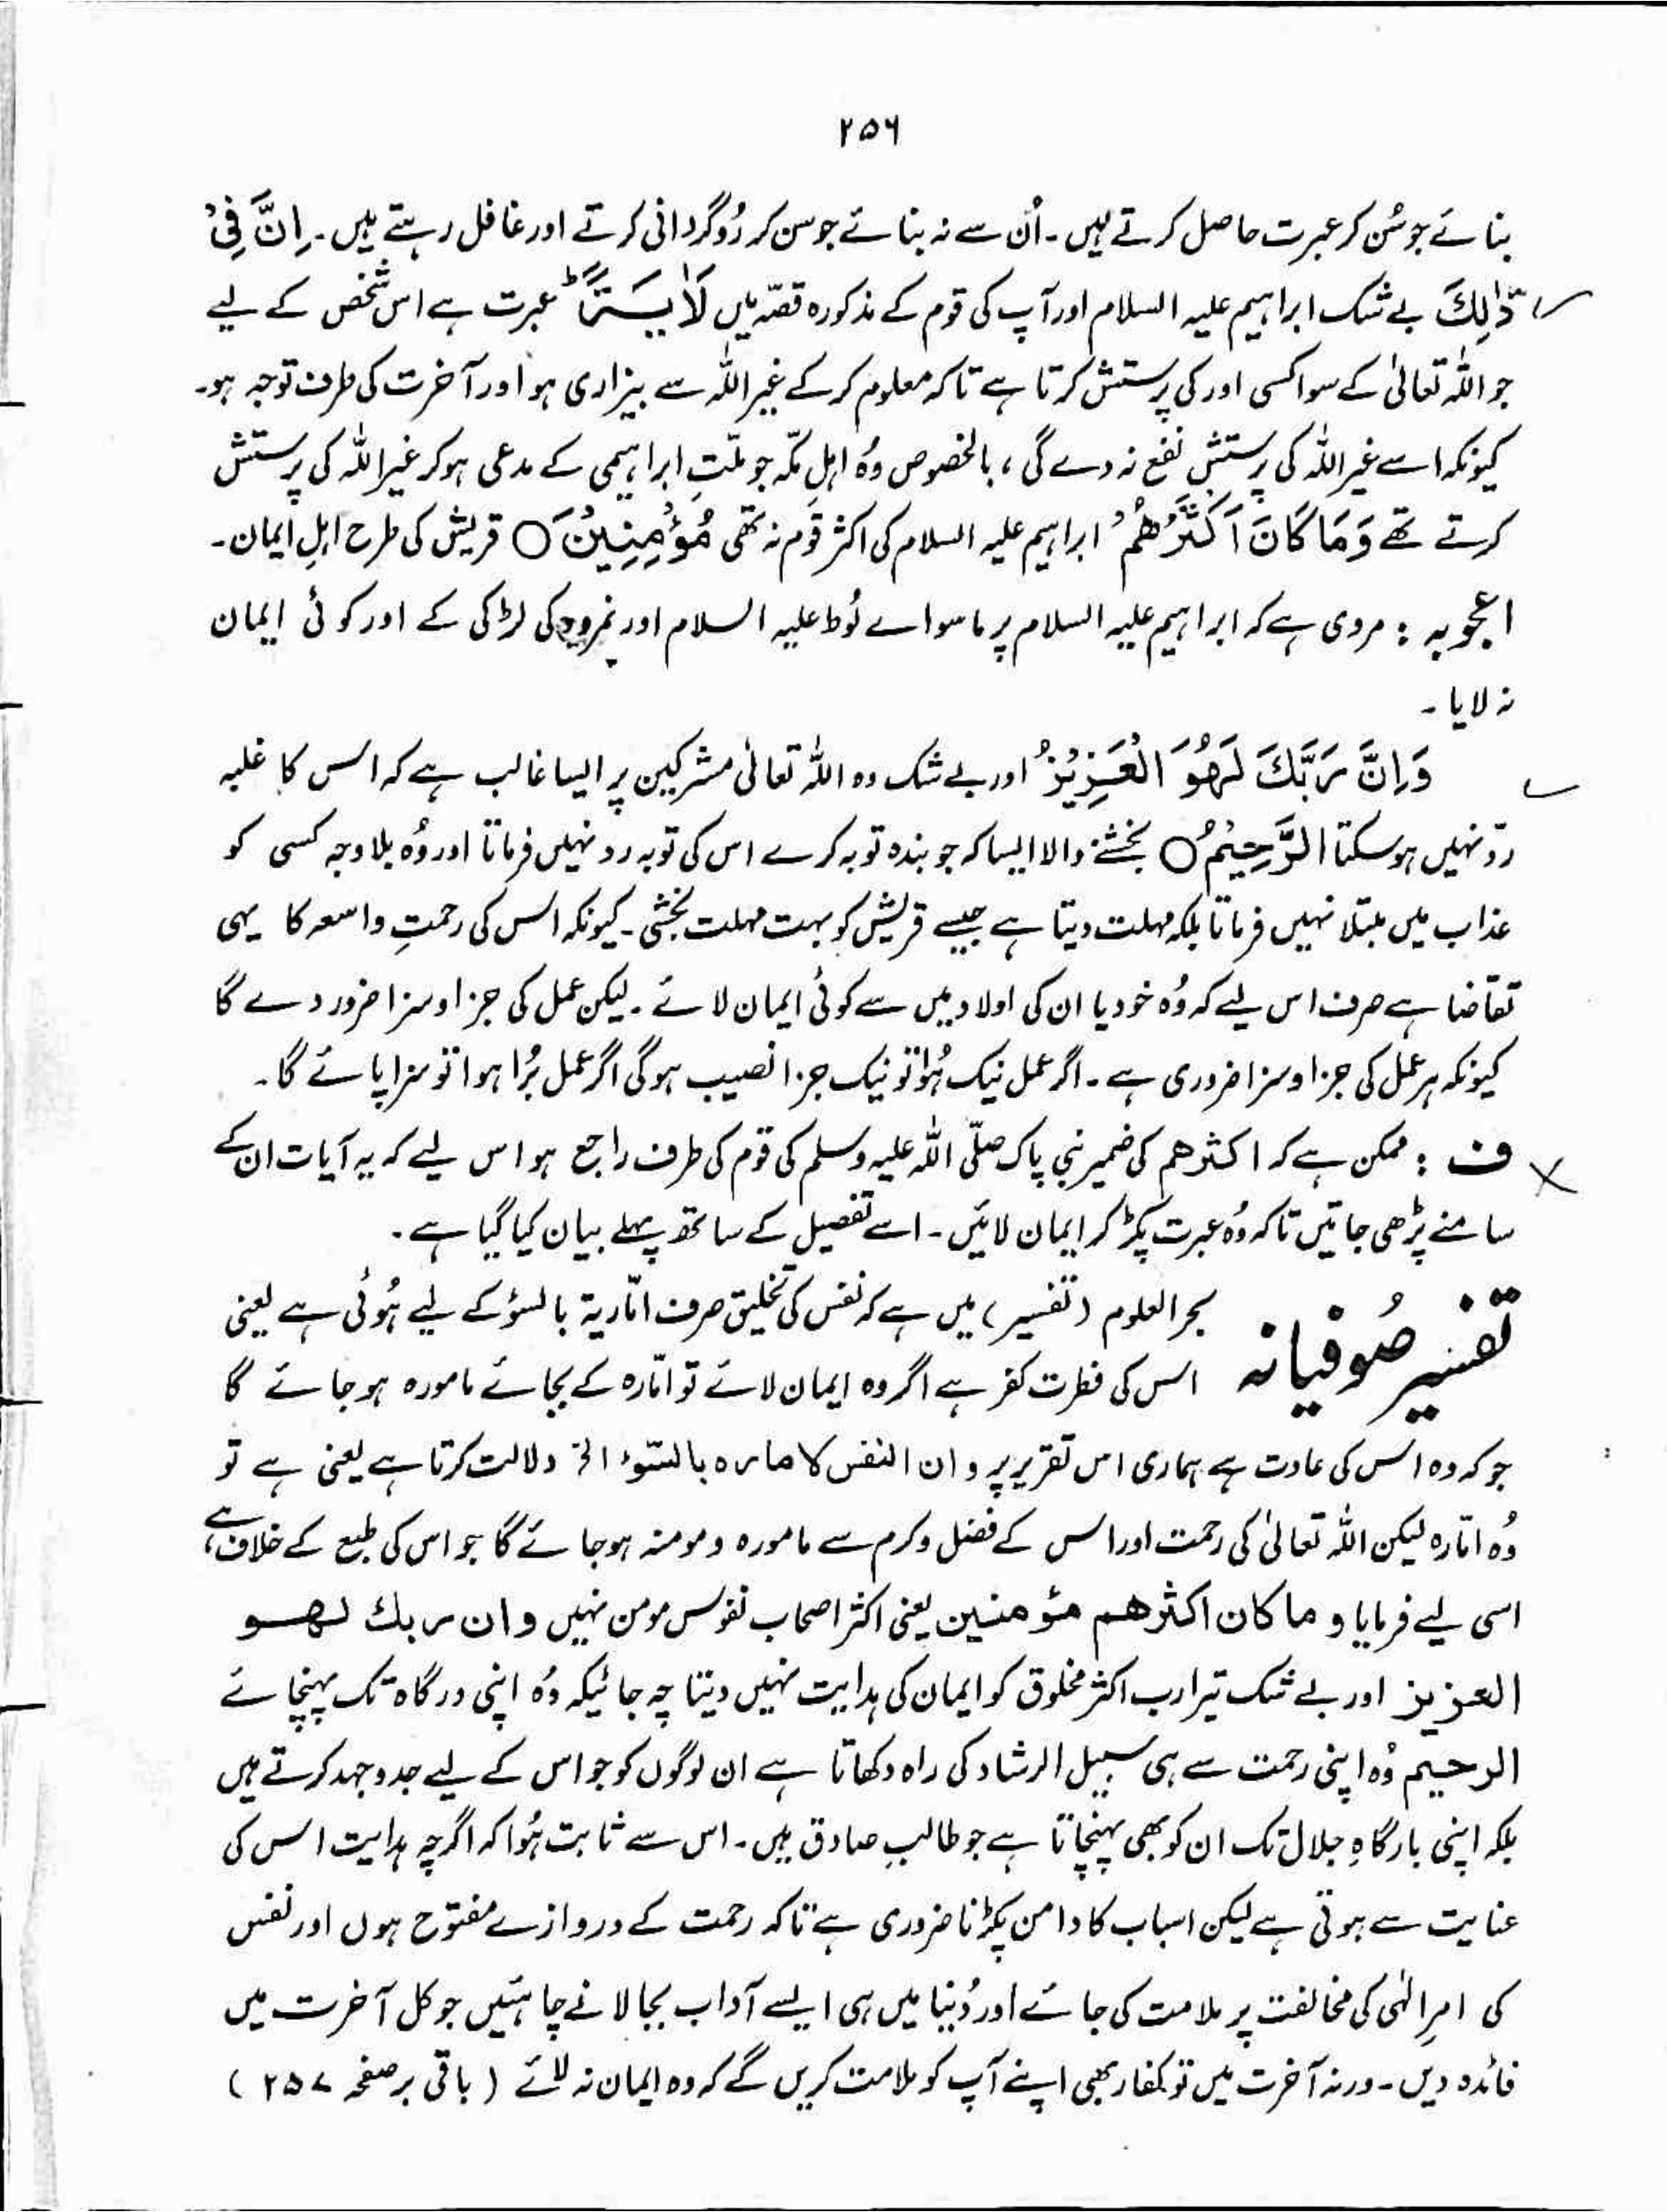 ۲۵۶
بنائے جو سُن کر عبرت حاصل کرتے ہیں۔ اُن سے نہ بنائے جو سن کر رُوگردانی کرتے اور غافل رہتے ہیں۔ اِنَّ فِیْ
ذٰلِكَ بے شک ابراہیم علیہ السلام اور آپ کی قوم کے مذکورہ قصّہ میں لَاٰیَةً ؕ عبرت ہے اس شخص کے لیے
جو اللہ تعالیٰ کے سوا کسی اور کی پرستش کرتا ہے تاکہ معلوم کر کے غیر اللہ سے بیزاری ہو اور آخرت کی طرف توجہ ہو۔
کیونکہ اسے غیر اللہ کی پرستش نفع نہ دے گی، بالخصوص وُہ اہلِ مکّہ جو ملّتِ ابراہیمی کے مدعی ہو کر غیر اللہ کی پرستش
کرتے تھے وَمَا كَانَ اَكْثَرُهُمْ ابراہیم علیہ السلام کی اکثر قوم نہ تھی مُؤْمِنِیْنَ ○ قریش کی طرح اہلِ ایمان۔
اعجوبہ : مروی ہے کہ ابراہیم علیہ السلام پر ماسوائے لُوط علیہ السلام اور نمرود کی لڑکی کے اور کوئی ایمان
نہ لایا۔
وَاِنَّ رَبَّكَ لَهُوَ الْعَزِیْزُ اور بے شک وہ اللہ تعالیٰ مشرکین پر ایسا غالب ہے کہ اس کا غلبہ
ردّ نہیں ہو سکتا الرَّحِیْمُ ○ بخشنے والا ایسا کہ جو بندہ توبہ کرے اس کی توبہ رد نہیں فرماتا اور وُہ بلا وجہ کسی کو
عذاب میں مبتلا نہیں فرماتا بلکہ مہلت دیتا ہے جیسے قریش کو بہت مہلت بخشی۔ کیونکہ اس کی رحمتِ واسعہ کا یہی
تقاضا ہے صرف اس لیے کہ وُہ خود یا ان کی اولاد میں سے کوئی ایمان لائے۔ لیکن عمل کی جزا و سزا ضرور دے گا
کیونکہ ہر عمل کی جزا و سزا ضروری ہے۔ اگر عمل نیک ہُوا تو نیک جزا نصیب ہوگی اگر عمل بُرا ہوا تو سزا پائے گا۔
ف : ممکن ہے کہ اکثرھم کی ضمیر نبی پاک صلّی اللہ علیہ وسلم کی قوم کی طرف راجع ہو اس لیے کہ یہ آیات ان کے
سامنے پڑھی جاتیں تاکہ وُہ عبرت پکڑ کر ایمان لائیں۔ اسے تفصیل کے ساتھ پہلے بیان کیا گیا ہے۔
تفسیر صُوفیانہ
بحر العلوم (تفسیر) میں ہے کہ نفس کی تخلیق صرف امّاریۃ بالسوٴ کے لیے ہُوئی ہے یعنی
اس کی فطرت کفر ہے اگر وہ ایمان لائے تو امّارہ کے بجائے مامورہ ہو جائے گا
جو کہ وہ اس کی عادت ہے ہماری اس تقریر پر و ان النفس لامارہ بالسّوء الخ دلالت کرتا ہے یعنی ہے تو
وُہ امّارہ لیکن اللہ تعالیٰ کی رحمت اور اس کے فضل و کرم سے مامورہ و مومنہ ہو جائے گا جو اس کی طبع کے خلاف ہے،
اسی لیے فرمایا و ما کان اکثرھم مؤمنین یعنی اکثر اصحاب نفوس مومن نہیں و ان ربك لھو
العزیز اور بے شک تیرا رب اکثر مخلوق کو ایمان کی ہدایت نہیں دیتا چہ جائیکہ وُہ اپنی درگاہ تک پہنچائے
الرحیم وُہ اپنی رحمت سے ہی سبیل الرشاد کی راہ دکھاتا ہے ان لوگوں کو جو اس کے لیے جدوجہد کرتے ہیں
بلکہ اپنی بارگاہِ جلال تک ان کو بھی پہنچاتا ہے جو طالبِ صادق ہیں۔ اس سے ثابت ہُوا کہ اگرچہ ہدایت اس کی
عنایت سے ہوتی ہے لیکن اسباب کا دامن پکڑنا ضروری ہے تاکہ رحمت کے دروازے مفتوح ہوں اور نفس
کی امرِ الٰہی کی مخالفت پر ملامت کی جائے اور دُنیا میں ہی ایسے آداب بجا لانے چاہئیں جو کل آخرت میں
فائدہ دیں۔ ورنہ آخرت میں تو کفار بھی اپنے آپ کو ملامت کریں گے کہ وہ ایمان نہ لائے (باقی بر صفحہ ۲۵۷)